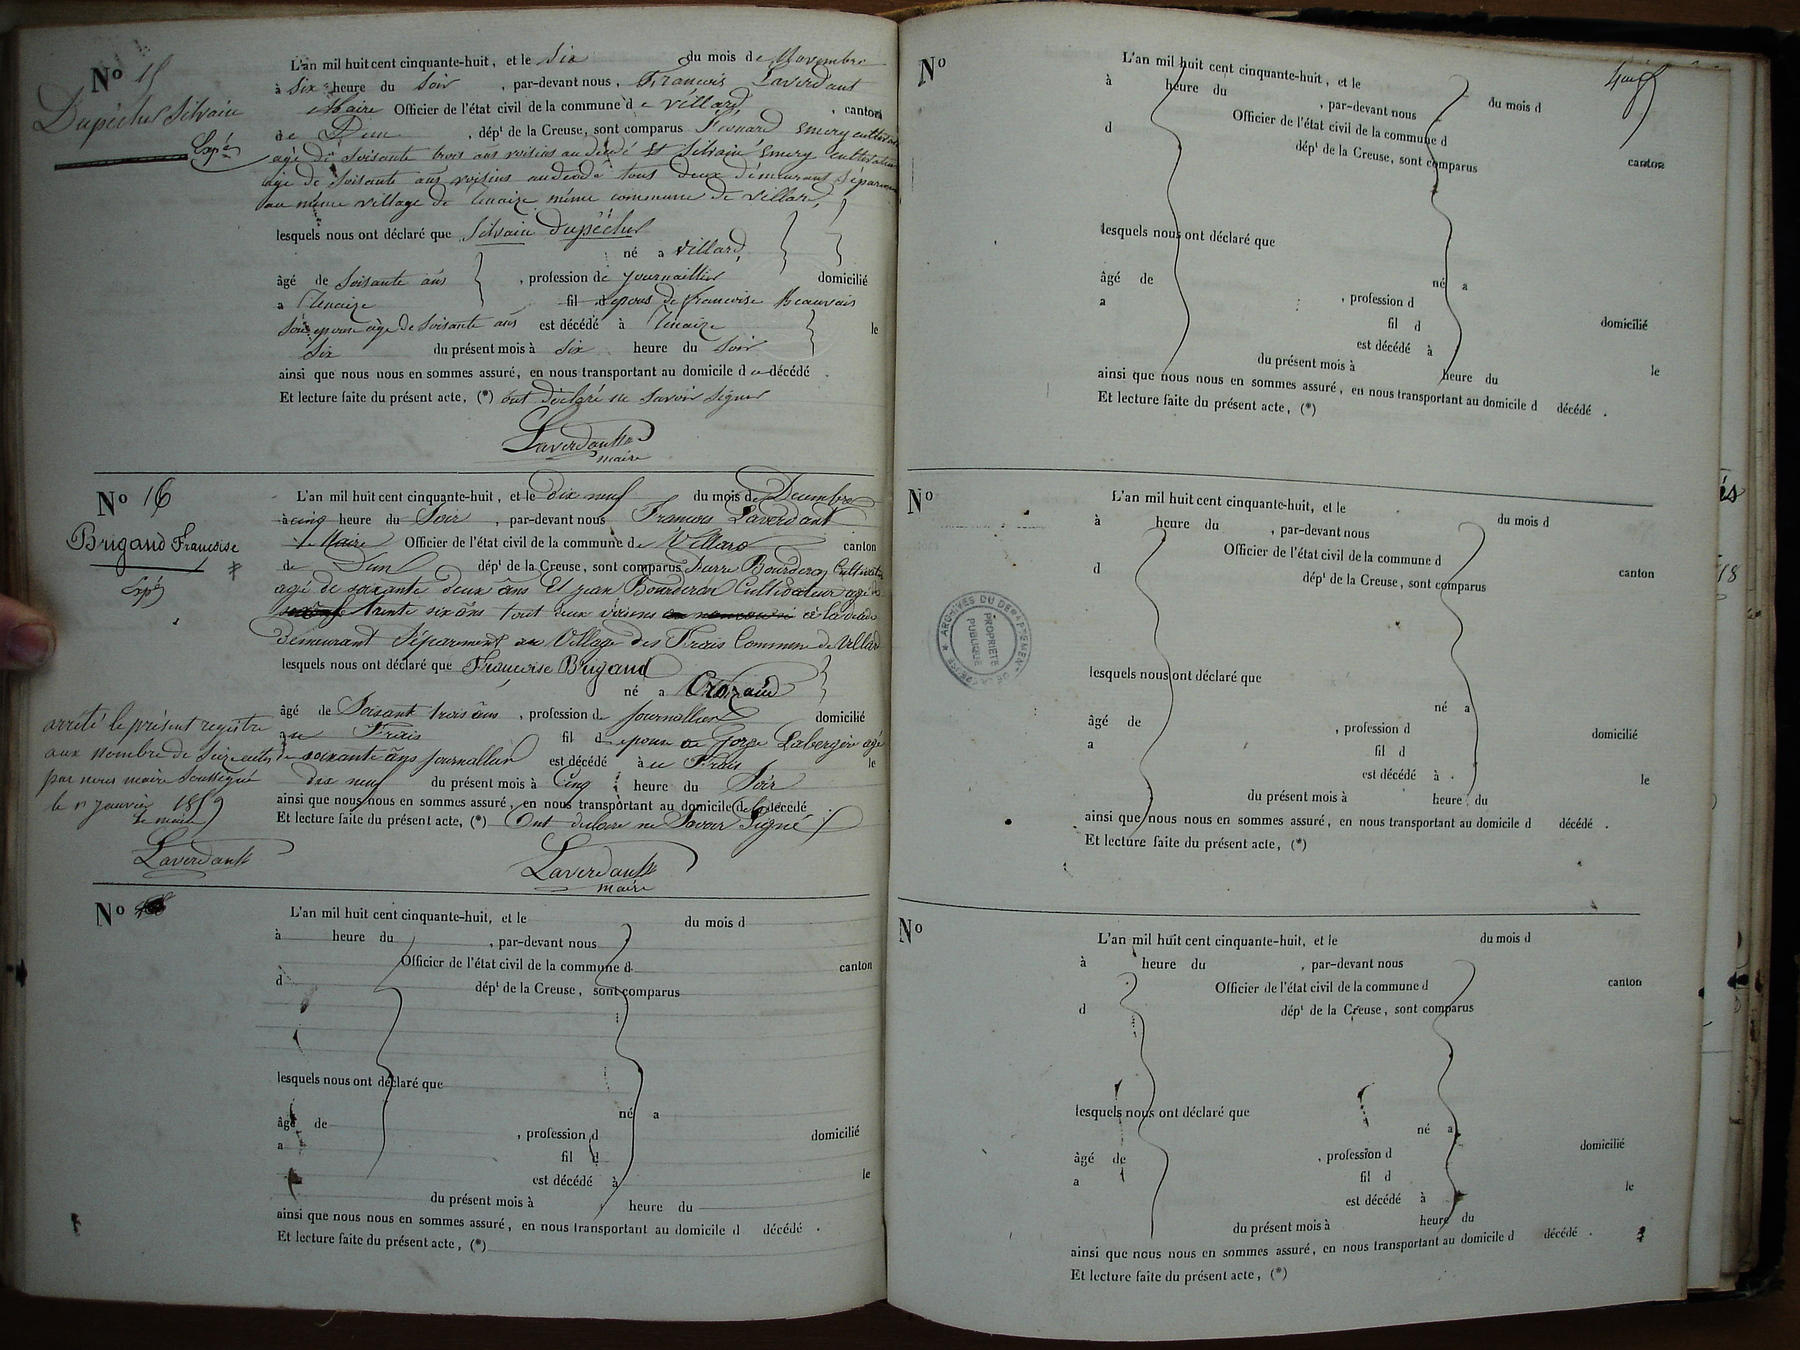 No 15
Dupêchel Silvain
Expé
L'an mil huit cent cinquante-huit, et le Six du mois de Novembre
à Six heure du Soir, par-devant nous, François Laverdant
Maire Officier de l'état civil de la commune d e Villard, canton
de Dun, dépt de la Creuse, sont comparus Léonard Emery cultivateur
agé de soisante trois ans voisins au dédé Et Silvain Emery cultivateur
age de soisante ans voisins au dédé tous deux demeurant Séparement
au même village de Lenaize même commune de Villard,
lesquels nous ont déclaré que Silvain Dupêchel
né a Villard,
âgé de soisante ans, profession de journaillier domicilié
a Lenaize fil epous de francoise Beauvais
Son epouse âgé de soisante ans est décédé à Lenaize le
Six du présent mois à Six heure du Soir
ainsi que nous nous en sommes assuré, en nous transportant au domicile d u décédé.
Et lecture faite du présent acte, (*) ont déclaré ne savoir signer
Laverdant
maire
No 16
Brigand Francoise
Expé
L'an mil huit cent cinquante-huit, et le Dix neuf du mois de Decembre
à cinq heure du Soir, par-devant nous Francois Laverdant
le Maire Officier de l'état civil de la commune de Villard canton
de Dun dépt de la Creuse, sont comparus Pierre Bourderon Cultivateur
agé de soixante deux ans Et jean Bourderon Cultivateur agé de
trante six ans tout deux voisins à la
demeurant Séparement au Village des Frais Commune de Villard
lesquels nous ont déclaré que Francoise Brigand
né a Crozand
âgé de Soisant trois ans, profession de journallier domicilié
au Frais fil d epouse de Labergère agé
de soixante ans journallier est décédé à au Frais le
dix neuf du présent mois à Cinq heure du Soir
ainsi que nous nous en sommes assuré, en nous transportant au domicile de la décédé
Et lecture faite du présent acte, (*) Ont declaré ne Savoir Signé
Laverdant
maire
arrêté le présent registre
aux nombre de Seize actes
par nous maire Soussigné
le 1er janvier 1859
le maire
Laverdant
No
L'an mil huit cent cinquante-huit, et le du mois d
à heure du, par-devant nous
Officier de l'état civil de la commune d canton
d dépt de la Creuse, sont comparus
lesquels nous ont déclaré que
né a
âgé de, profession d domicilié
a fil d
est décédé à le
du présent mois à heure du
ainsi que nous nous en sommes assuré, en nous transportant au domicile d décédé.
Et lecture faite du présent acte, (*)
No
L'an mil huit cent cinquante-huit, et le du mois d
à heure du, par-devant nous
Officier de l'état civil de la commune d
d dépt de la Creuse, sont comparus canton
lesquels nous ont déclaré que
né a
âgé de, profession d
a fil d domicilié
est décédé à
du présent mois à heure du le
ainsi que nous nous en sommes assuré, en nous transportant au domicile d décédé.
Et lecture faite du présent acte, (*)
No
L'an mil huit cent cinquante-huit, et le du mois d
à heure du, par-devant nous
Officier de l'état civil de la commune d
d dépt de la Creuse, sont comparus canton
ARCHIVES DU DEPARTEMENT DE LA CREUSE
PROPRIETE PUBLIQUE
lesquels nous ont déclaré que
né a
âgé de, profession d domicilié
a fil d
est décédé à le
du présent mois à heure du
ainsi que nous nous en sommes assuré, en nous transportant au domicile d décédé.
Et lecture faite du présent acte, (*)
No
L'an mil huit cent cinquante-huit, et le du mois d
à heure du, par-devant nous
Officier de l'état civil de la commune d canton
d dépt de la Creuse, sont comparus
lesquels nous ont déclaré que
né a
âgé de, profession d domicilié
a fil d
est décédé à le
du présent mois à heure du
ainsi que nous nous en sommes assuré, en nous transportant au domicile d décédé.
Et lecture faite du présent acte, (*)